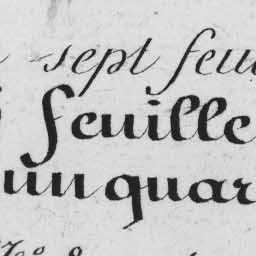 sept feui
feuille
un quar